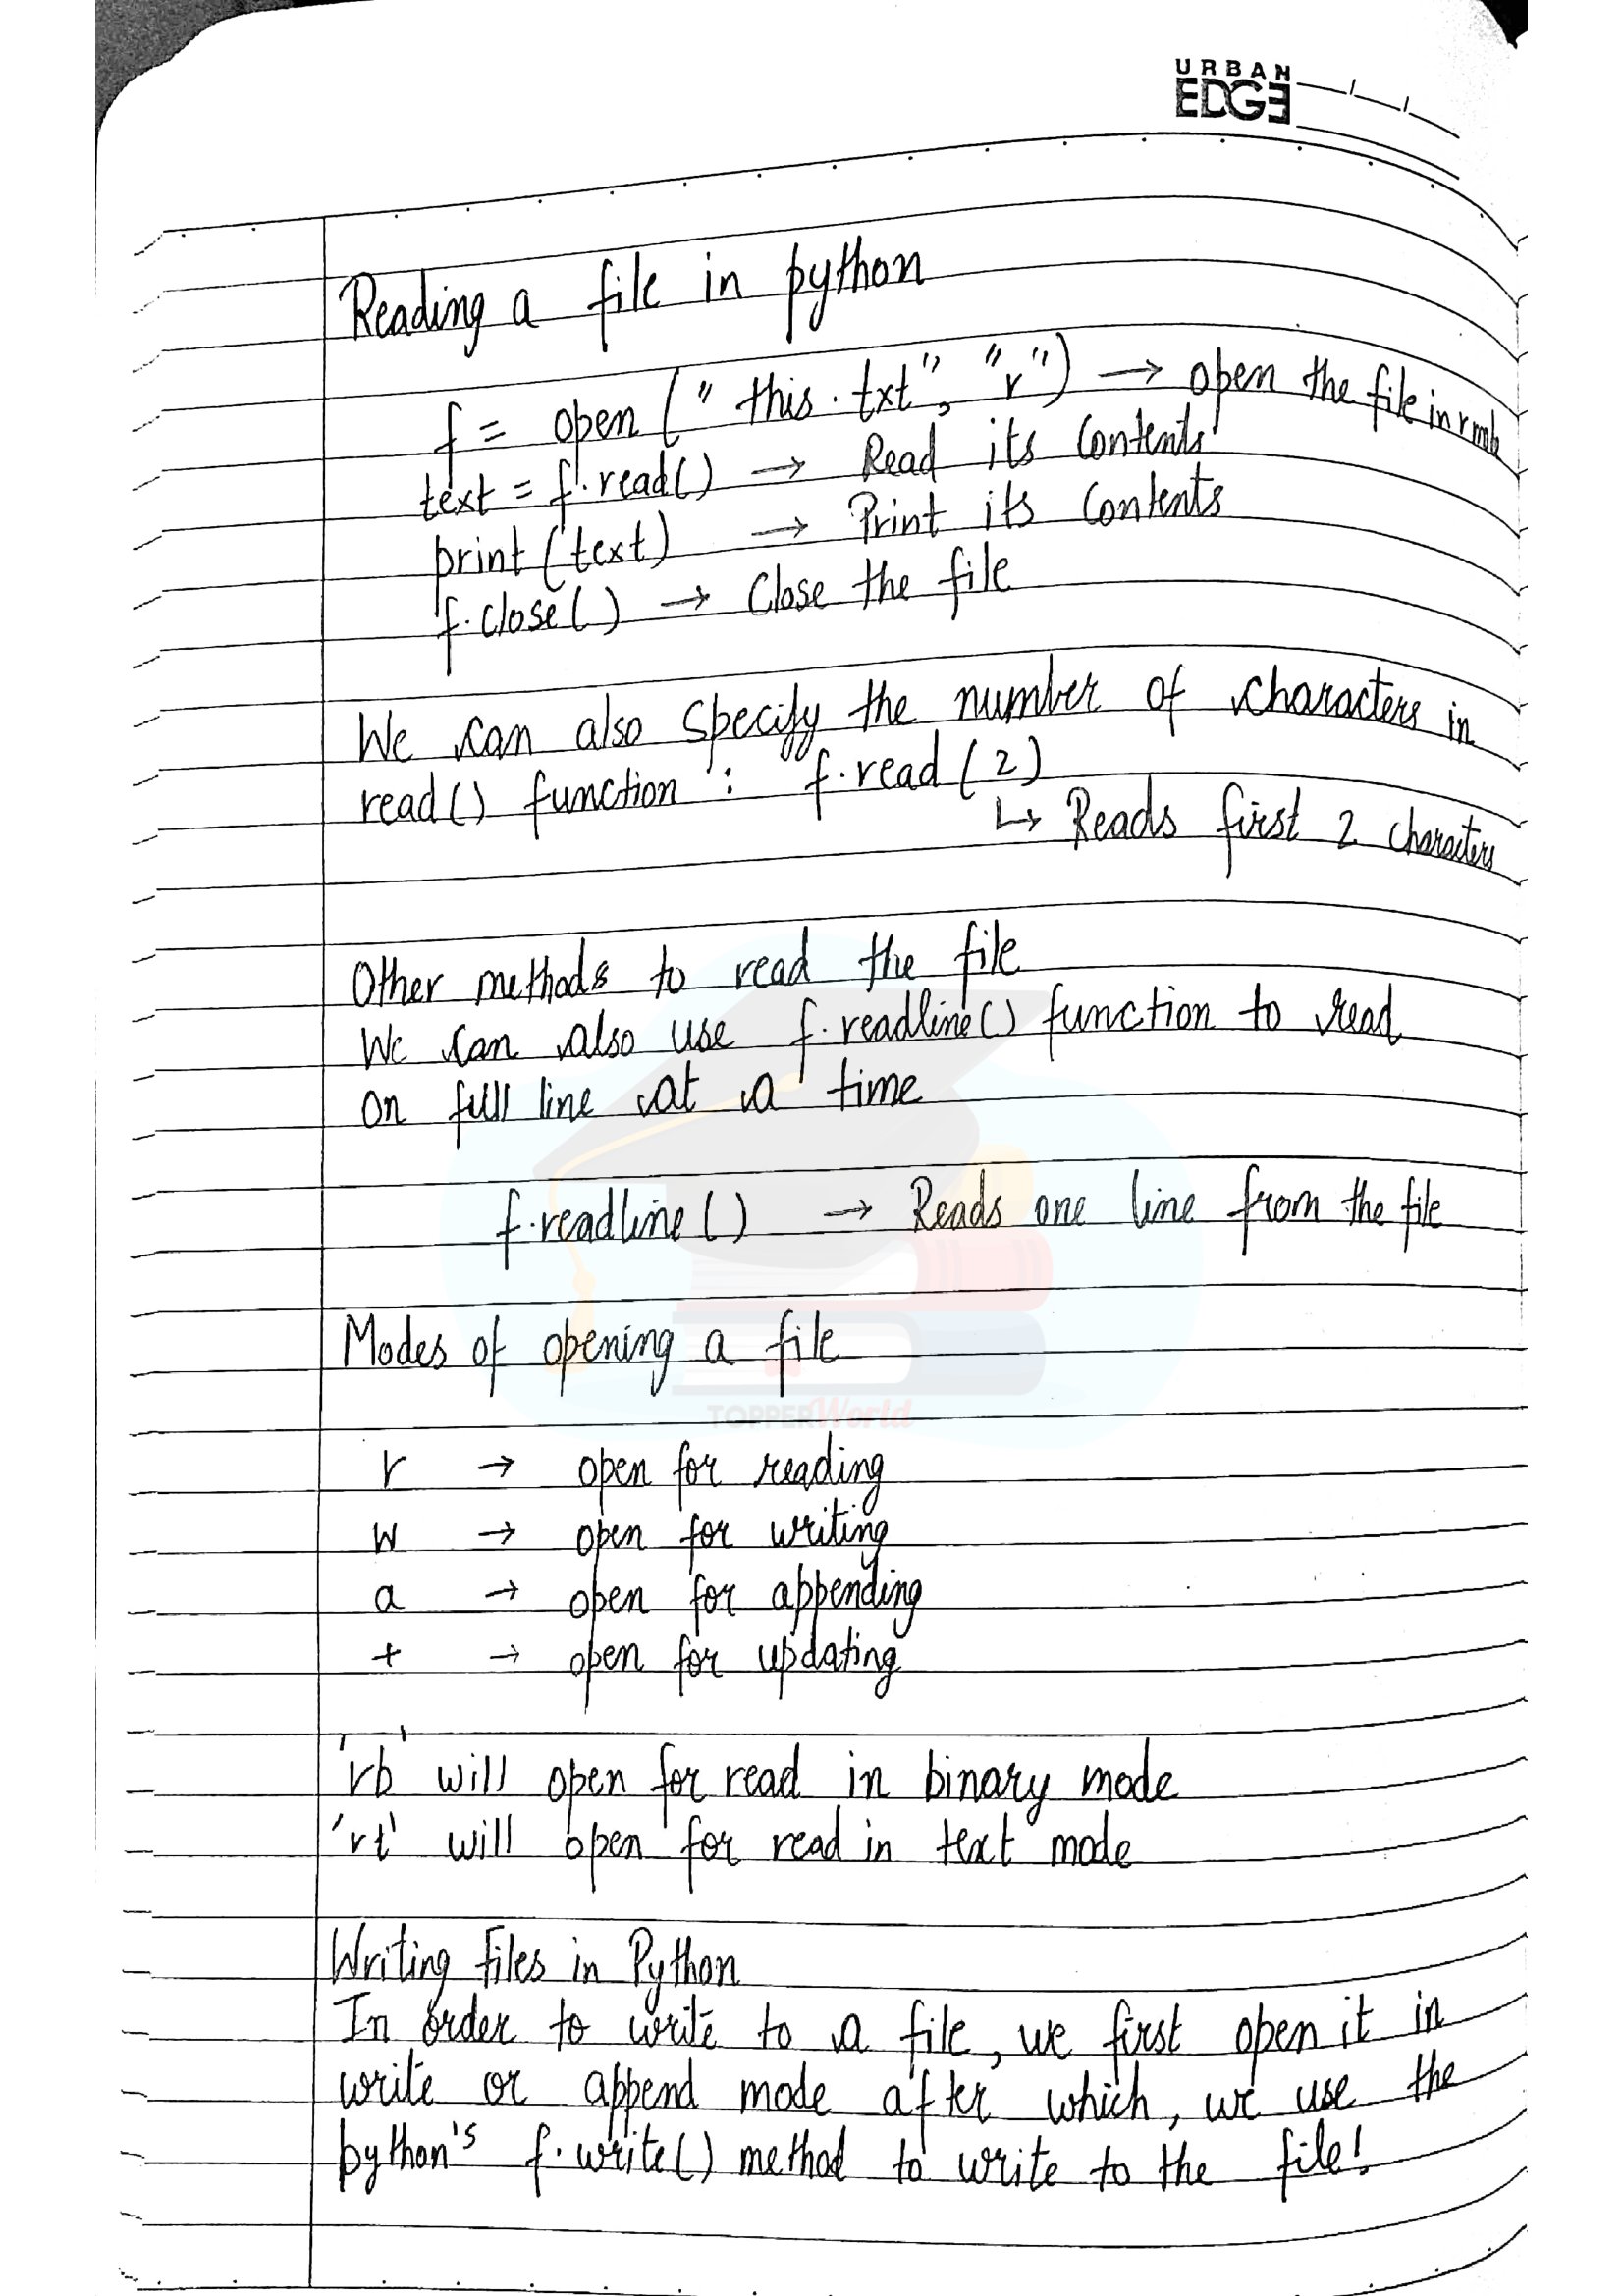 URBAN
EDGE
Reading a file in python
f = open ("this.txt", "r") → open the file in r mode
text = f.read() → Read its contents
print (text) → Print its contents
f.close() → Close the file
We can also specify the number of characters in
read() function : f.read (2)
↳ Reads first 2 characters
Other methods to read the file
We can also use f.readline() function to read
on full line at a time
f.readline () → Reads one line from the file
Modes of opening a file
TOPPERWorld
r → open for reading
w → open for writing
a → open for appending
+ → open for updating
'rb' will open for read in binary mode
'rt' will open for read in text mode
Writing files in Python
In order to write to a file, we first open it in
write or append mode after which, we use the
python's f.write() method to write to the file!